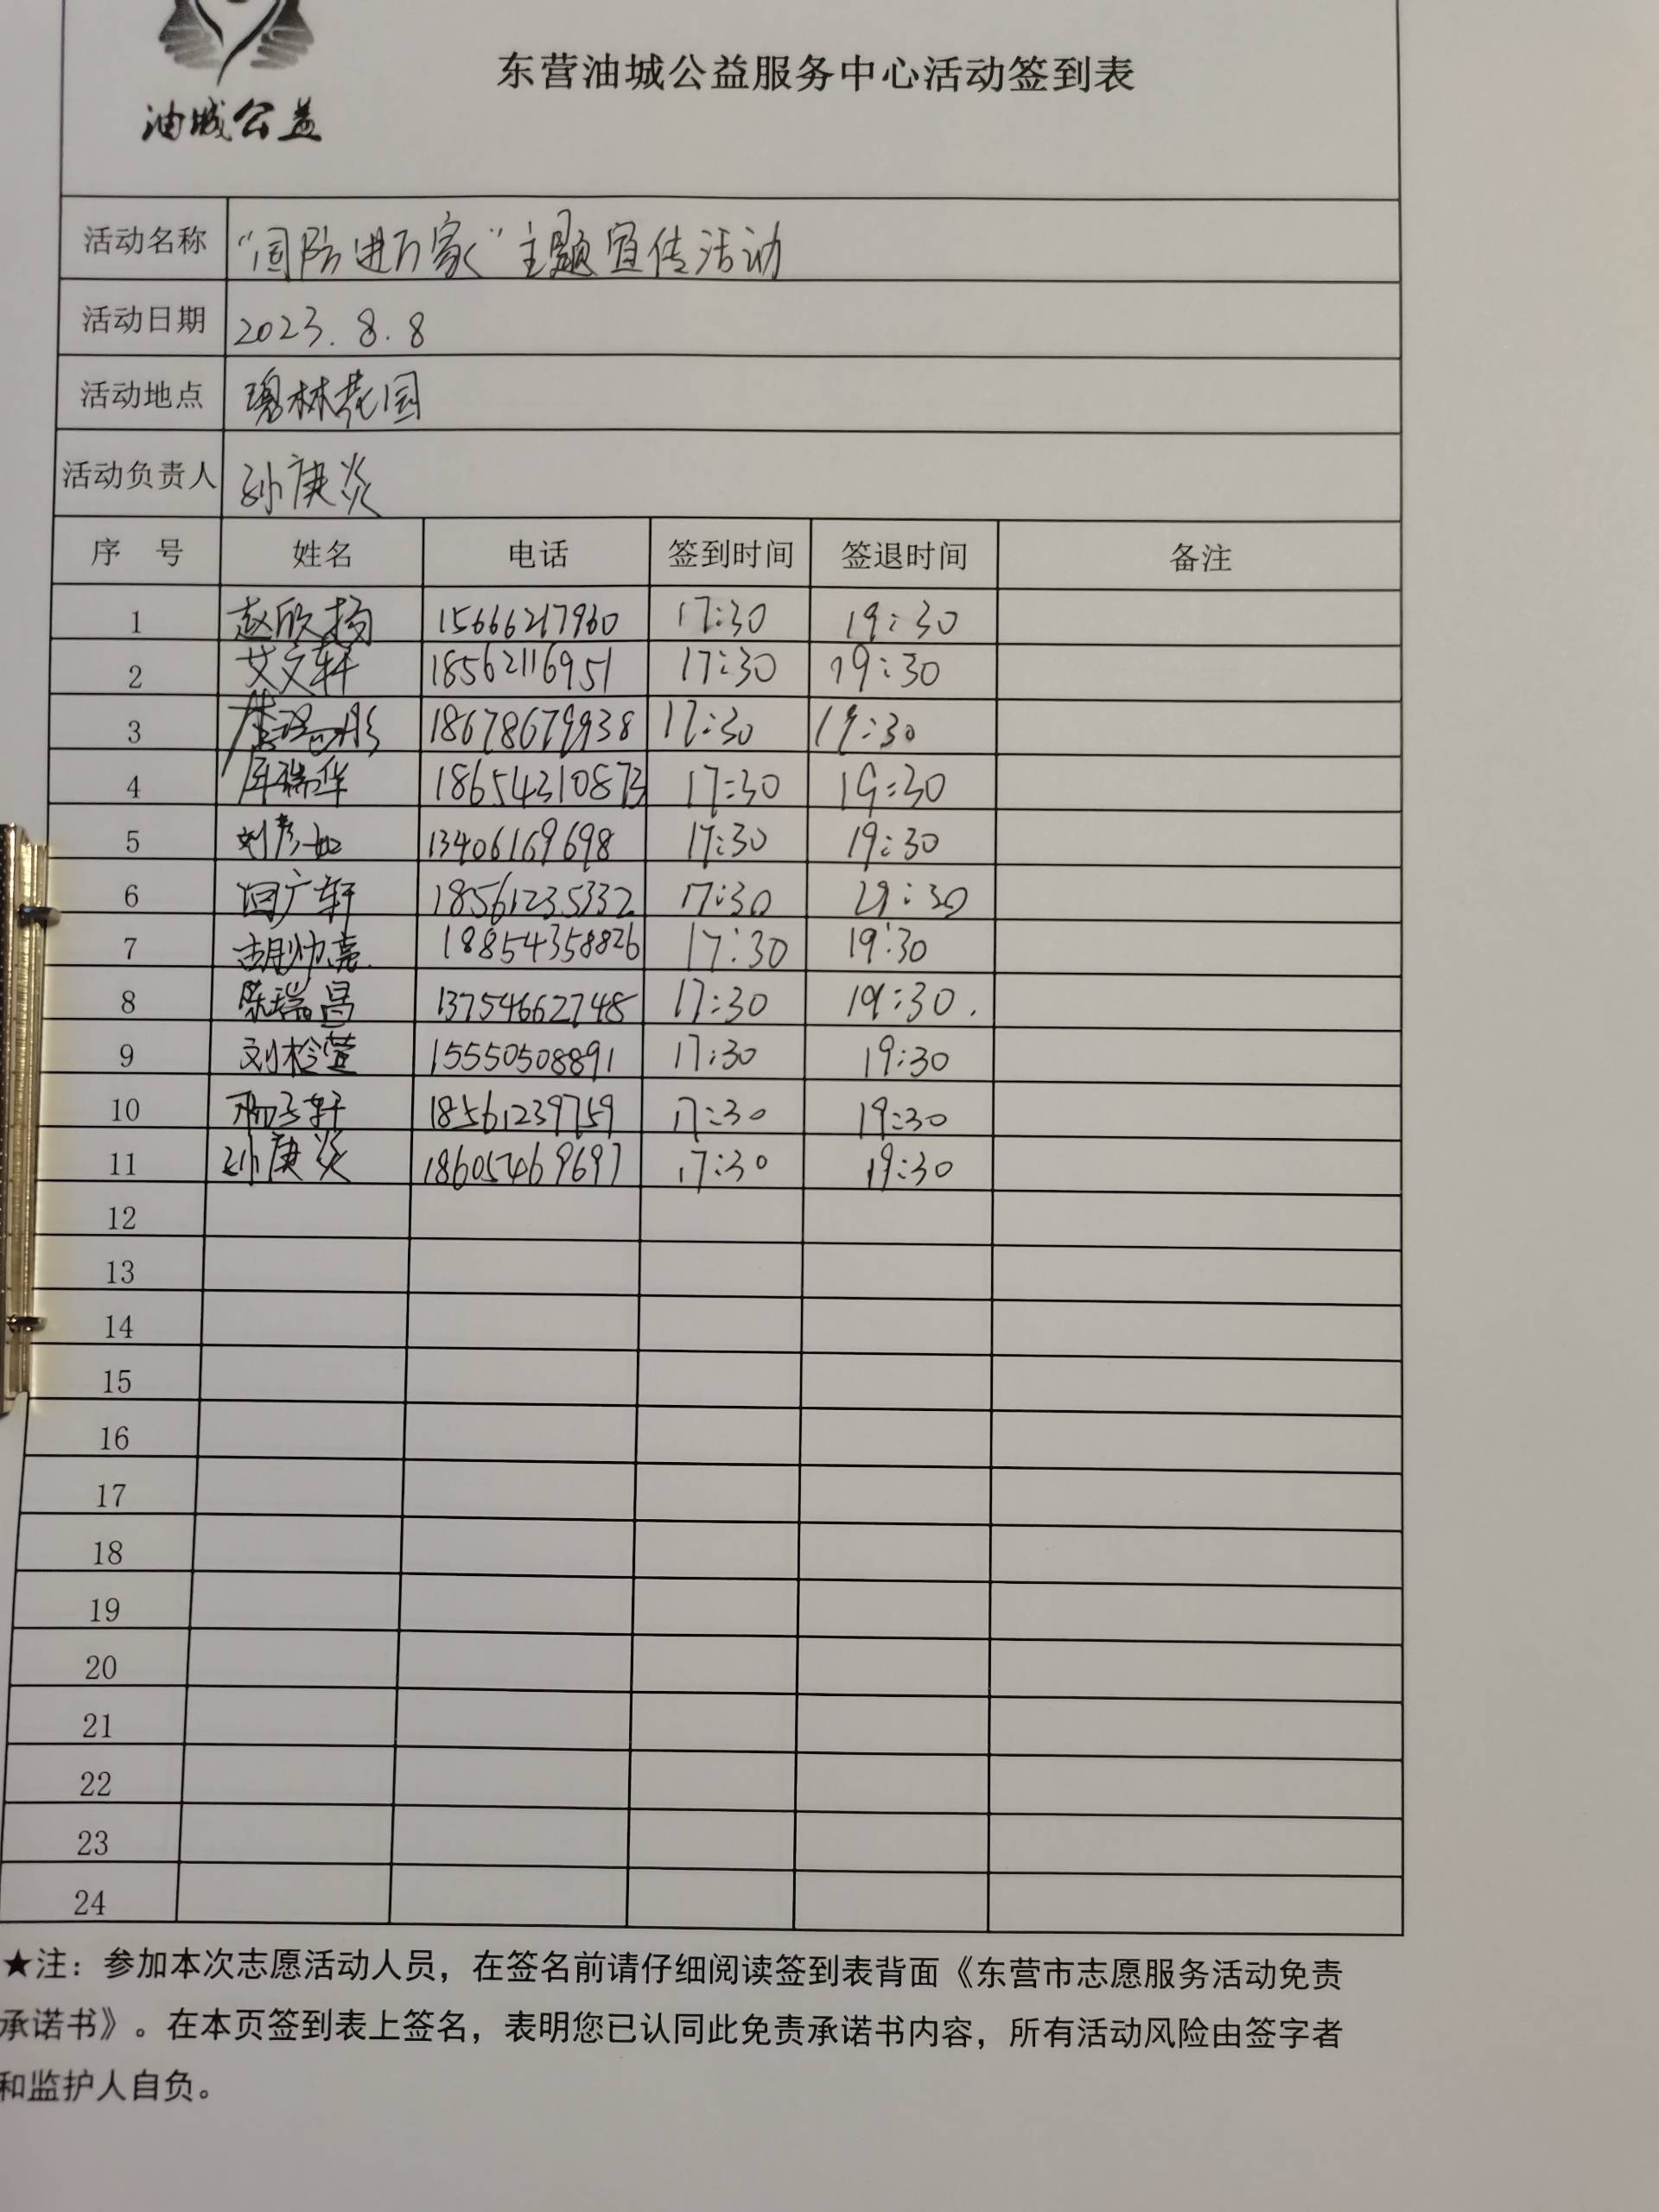 油城公益
东营油城公益服务中心活动签到表
活动名称 “国防进万家”主题宣传活动
活动日期 2023.8.8
活动地点 琅林花园
活动负责人 孙庚炎
序 号 姓名 电话 签到时间 签退时间 备注
1 赵欣扬 15666217960 17:30 19:30
2 艾文轩 18562116951 17:30 19:30
3 18678679938 17:30 19:30
4 瑞华 18654310873 17:30 19:30
5 刘彦如 13406169698 17:30 19:30
6 闫广轩 18561235332 17:30 19:30
7 胡帅亮 18854358826 17:30 19:30
8 陈瑞昌 13754662748 17:30 19:30.
9 刘检萱 15550508891 17:30 19:30
10 子轩 18561239759 17:30 19:30
11 孙庚炎 18605469697 17:30 19:30
12
13
14
15
16
17
18
19
20
21
22
23
24
★注：参加本次志愿活动人员，在签名前请仔细阅读签到表背面《东营市志愿服务活动免责
承诺书》。在本页签到表上签名，表明您已认同此免责承诺书内容，所有活动风险由签字者
和监护人自负。